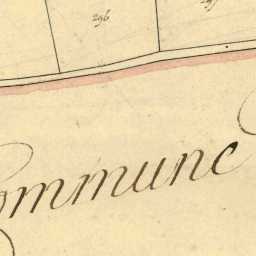 296
Commune